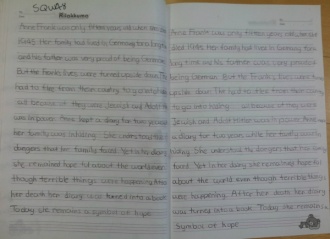 SQUAY
Anne Frank was only fifteen years old when she
died. Her family had lived in Germany for a long time
and his father was very proud of being German.
But the Franks lives were turned upside down. They
had to flee from their country to go into hiding
all because of they was Jewish and Adolf Hitler
was in power. Anne kept a diary for two years while
her family was in hiding. She understood the
dangers that her family faced. Yet in her diary
she remained hopeful about the world even
though terrible things were happening. After
her death her diary was turned into a book
Today she remains a symbol of hope
Anne Frank was only fifteen years old when she
died. Her family had lived in Germany for a
long time and his father was very proud of
being German. But the Franks lives were turned
upside down. They had to flee from their country
to go into hiding all because of they was
Jewish and Adolf Hitler was in power. Anne kept
a diary for two years while her family was in
hiding. She understood the dangers that her family
faced. Yet in her diary she remained hopeful
about the world even though terrible things
was happening. After her death her diary
was turned into a book. Today she remains a
symbol of hope